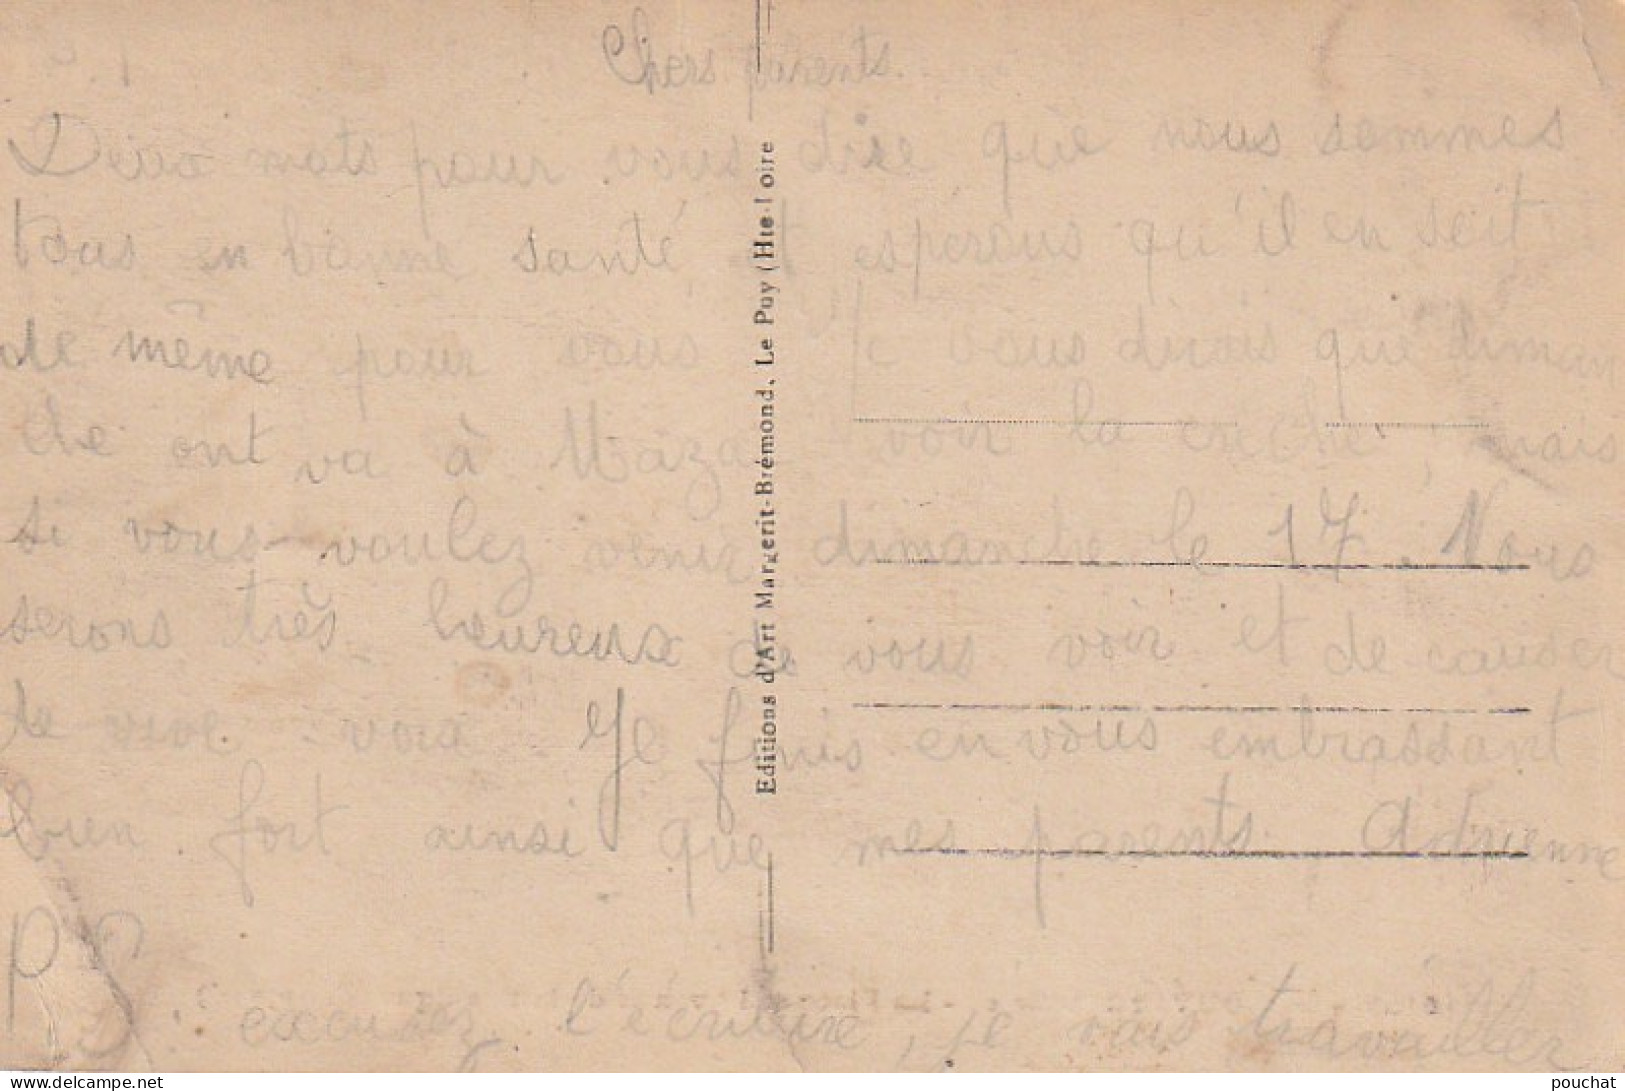 Chers parents.
Deux mots pour vous dire que nous sommes
tous en bonne santé et esperons qu'il en soit
de même pour vous Je vous dirais que diman
che ont va à Maza voir la crèche, mais
si vous voulez venir dimanche le 17. Nous
serons très heureux de vous voir et de causer
de vive voix Je finis en vous embrassant
bien fort ainsi que mes parents. Adrienne
P.S
: excousez l'écriture, je vais travailler
Editions d'Art Margerit-Brémond, Le Puy (Hte-Loire
pouchat